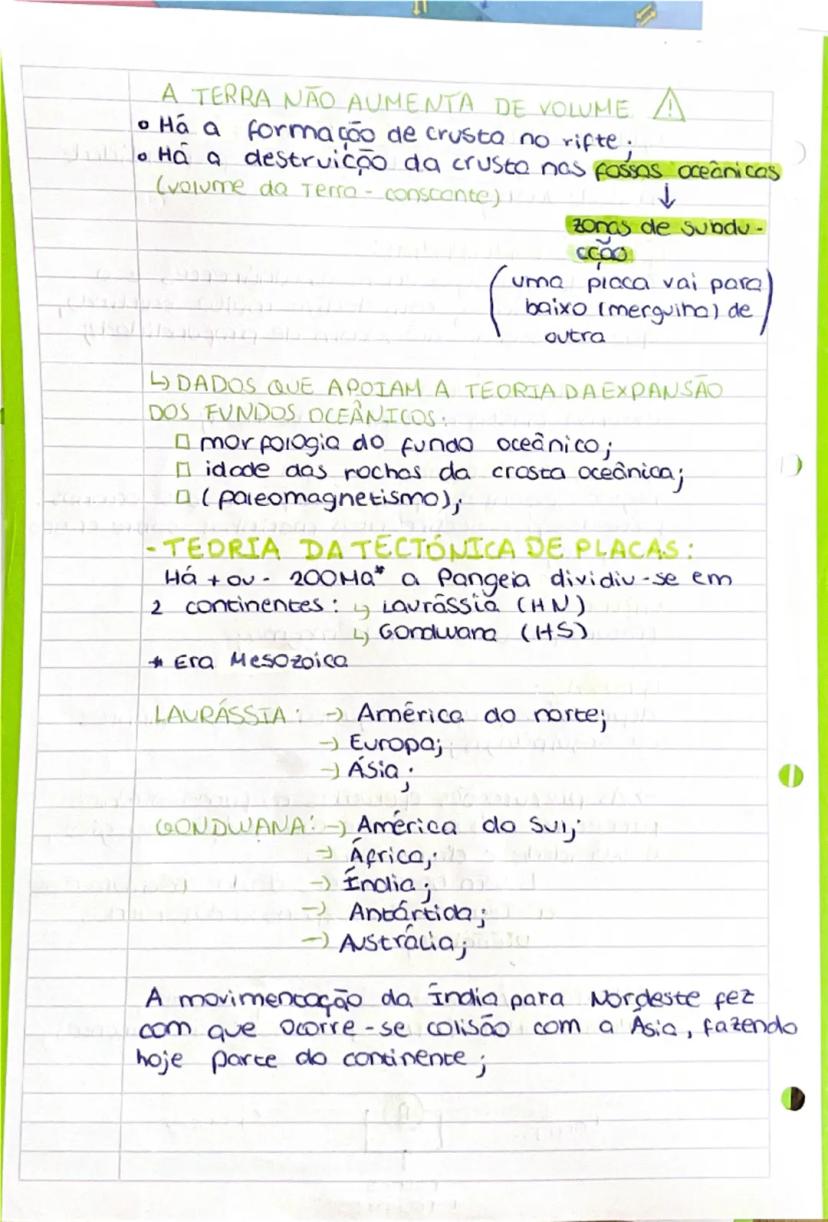 A TERRA NÃO AUMENTA DE VOLUME ⚠
• Há a formação de crusta no rifte;
• Há a destruicção da crusta nas fossas oceânicas
(volume da Terra - constante) ↓
zonas de subdu-
cção
(uma placa vai para
baixo (mergulha) de
outra)
↳ DADOS QUE APOIAM A TEORIA DA EXPANSÃO
DOS FUNDOS OCEÂNICOS:
□ morfologia do fundo oceânico;
□ idade das rochas da crosta oceânica;
□ (paleomagnetismo);
- TEORIA DA TECTÓNICA DE PLACAS:
Há + ou - 200Ma* a Pangeia dividiu-se em
2 continentes: ↳ Laurássia (HN)
↳ Gondwana (HS)
* Era Mesozoica
LAURÁSSIA: → América do norte;
→ Europa;
→ Ásia;
GONDWANA: → América do Sul;
→ África;
→ Índia;
→ Antártida;
→ Austrália;
A movimentação da Índia para Nordeste fez
com que ocorre-se colisão com a Ásia, fazendo
hoje parte do continente;